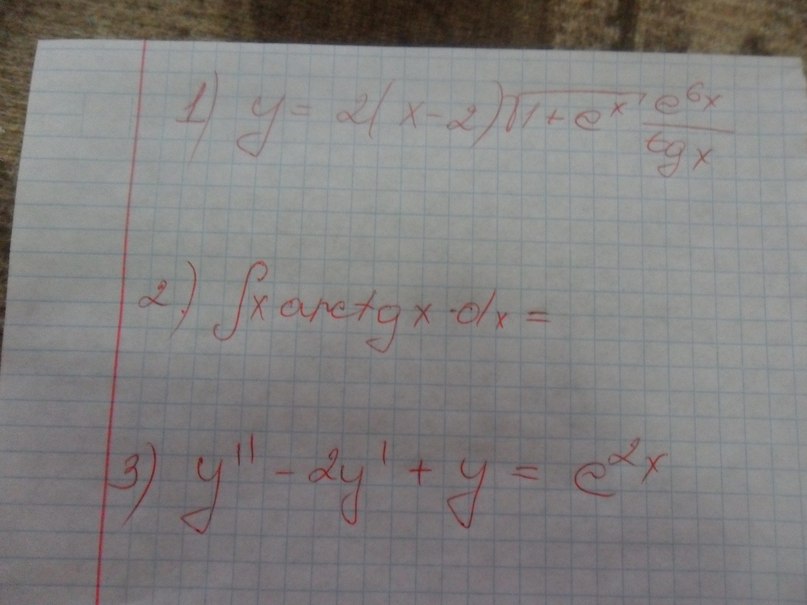 1) y = 2(x-2)√(1+e^x) e^(6x)/tg x
2) ∫x arctg x · dx =
3) y'' - 2y' + y = e^(2x)